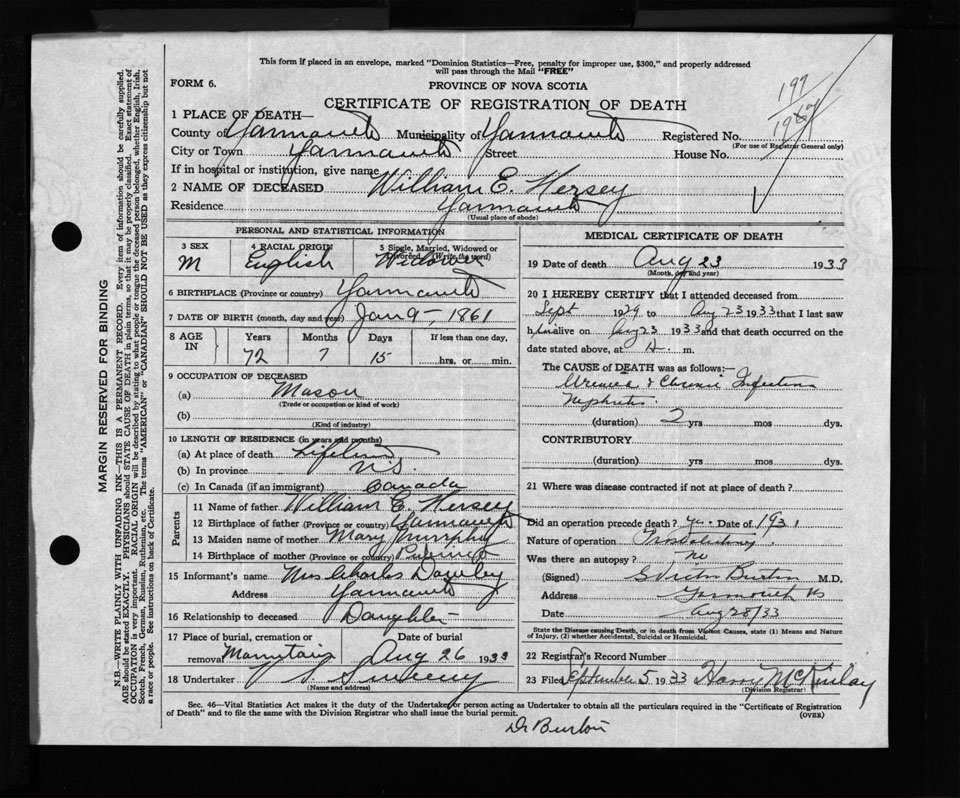 This form if placed in an envelope, marked "Dominion Statistics—Free, penalty for improper use, $300," and properly addressed
will pass through the Mail "FREE"
FORM 6.
PROVINCE OF NOVA SCOTIA
CERTIFICATE OF REGISTRATION OF DEATH
197
1967
1 PLACE OF DEATH—
County of Yarmouth Municipality of Yarmouth Registered No.
(For use of Registrar General only)
City or Town Yarmouth Street House No.
If in hospital or institution, give name
2 NAME OF DECEASED William E. Hersey
Residence Yarmouth
(Usual place of abode)
PERSONAL AND STATISTICAL INFORMATION
3 SEX 4 RACIAL ORIGIN 5 Single, Married, Widowed or Divorced (Write the word)
M English Widower
6 BIRTHPLACE (Province or country) Yarmouth
7 DATE OF BIRTH (month, day and year) Jan 9 - 1861
8 AGE IN Years Months Days If less than one day,
72 7 15 hrs. or min.
9 OCCUPATION OF DECEASED
(a) Mason
(Trade or occupation or kind of work)
(b)
(Kind of industry)
10 LENGTH OF RESIDENCE (in years and months)
(a) At place of death Lifetime
(b) In province N.S.
(c) In Canada (if an immigrant) Canada
Parents
11 Name of father William E. Hersey
12 Birthplace of father (Province or country) Yarmouth
13 Maiden name of mother Mary Murphy
14 Birthplace of mother (Province or country)
15 Informant's name Mrs Charles
Address Yarmouth
16 Relationship to deceased Daughter
17 Place of burial, cremation or removal Mountain Date of burial Aug 26 1933
18 Undertaker V S Sweeny
(Name and address)
MEDICAL CERTIFICATE OF DEATH
19 Date of death Aug 23 1933
(Month, day and year)
20 I HEREBY CERTIFY that I attended deceased from
Sept 1929 to Aug 23 1933 that I last saw
him alive on Aug 23 1933 and that death occurred on
date stated above, at A. m.
The CAUSE of DEATH was as follows:—
Uremia & Chronic Infectious
Nephritis.
(duration) 2 yrs mos dys.
CONTRIBUTORY
(duration) yrs mos dys.
21 Where was disease contracted if not at place of death?
Did an operation precede death? yes. Date of 1931
Nature of operation
Was there an autopsy? no
(Signed) Burton M.D.
Address Yarmouth NS
Date Aug 28/33
State the Disease causing Death, or in death from Violent Causes, state (1) Means and Nature
of Injury, (2) whether Accidental, Suicidal or Homicidal.
22 Registrar's Record Number
23 Filed September 5 1933 Harry McKinlay
(Division Registrar)
Sec. 46—Vital Statistics Act makes it the duty of the Undertaker or person acting as Undertaker to obtain all the particulars required in the "Certificate of Registration
of Death" and to file the same with the Division Registrar who shall issue the burial permit.
(OVER)
Dr Burton
MARGIN RESERVED FOR BINDING
N.B.—WRITE PLAINLY WITH UNFADING INK—THIS IS A PERMANENT RECORD. Every item of information should be carefully supplied.
AGE should be stated EXACTLY. PHYSICIANS should STATE CAUSE OF DEATH in plain terms, so that it may be properly classified. Exact statement of
OCCUPATION is very important. RACIAL ORIGIN will be described by stating to what people or tongue the deceased person belonged, whether English, Irish,
Scotch, French, German, Russian, Ruthenian, etc. The terms "AMERICAN" or "CANADIAN" SHOULD NOT BE USED as they express citizenship but not
a race or people. See instructions on back of Certificate.